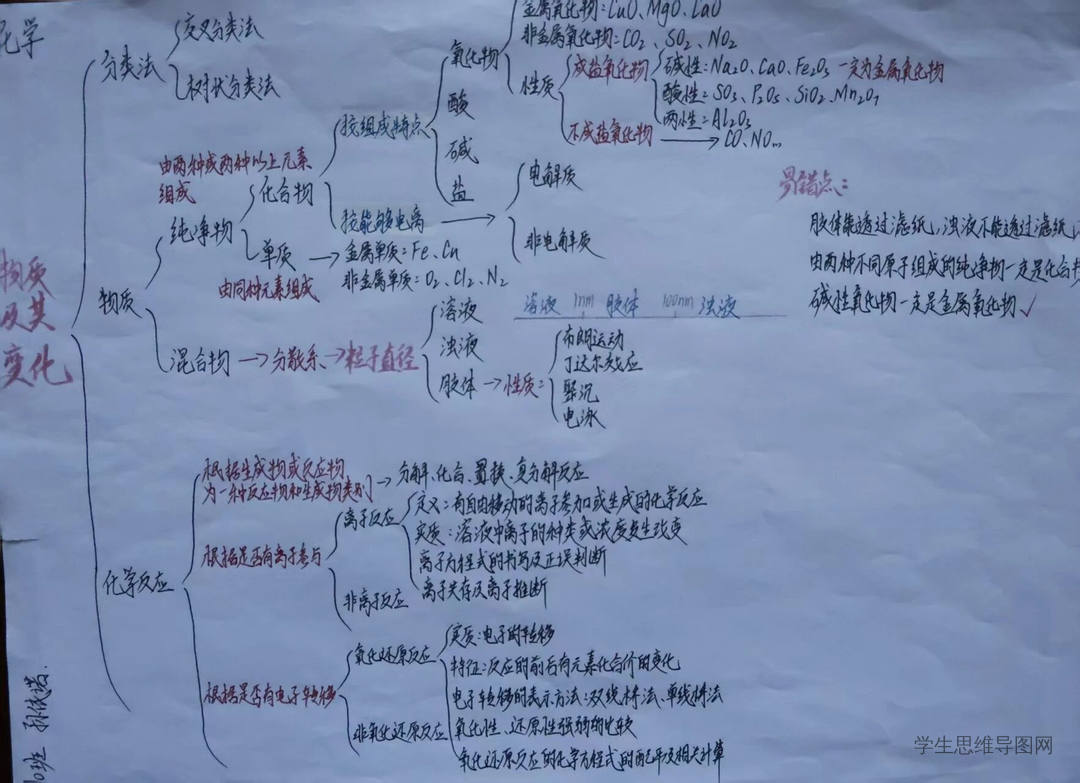 化学
物质
及其
变化
分类法
交叉分类法
树状分类法
物质
纯净物
由两种或两种以上元素
组成
化合物
按组成特点
氧化物
金属氧化物:CuO、MgO、CaO
非金属氧化物:CO2、SO2、NO2
性质
成盐氧化物
碱性:Na2O、CaO、Fe2O3 一定为金属氧化物
酸性:SO3、P2O5、SiO2、Mn2O7
两性:Al2O3
不成盐氧化物 → CO、NO…
酸
碱
盐
按能够电离
电解质
非电解质
单质
由同种元素组成
金属单质:Fe、Cu
非金属单质:O2、Cl2、N2
混合物 → 分散系 → 粒子直径
溶液
浊液
胶体 → 性质:
溶液 1nm 胶体 100nm 浊液
布朗运动
丁达尔效应
聚沉
电泳
易错点:
胶体能透过滤纸,浊液不能透过滤纸✓
由两种不同原子组成的纯净物一定是化合物
碱性氧化物一定是金属氧化物✓
化学反应
根据生成物或反应物
为一种反应物和生成物类别 → 分解、化合、置换、复分解反应
根据是否有离子参与
离子反应
定义:有自由移动的离子参加或生成的化学反应
实质:溶液中离子的种类或浓度发生改变
离子方程式的书写及正误判断
离子共存及离子推断
非离子反应
根据是否有电子转移
氧化还原反应
实质:电子的转移
特征:反应的前后有元素化合价的变化
电子转移的表示方法:双线桥法、单线桥法
氧化性、还原性强弱的比较
氧化还原反应的化学方程式的配平及相关计算
非氧化还原反应
学生思维导图网